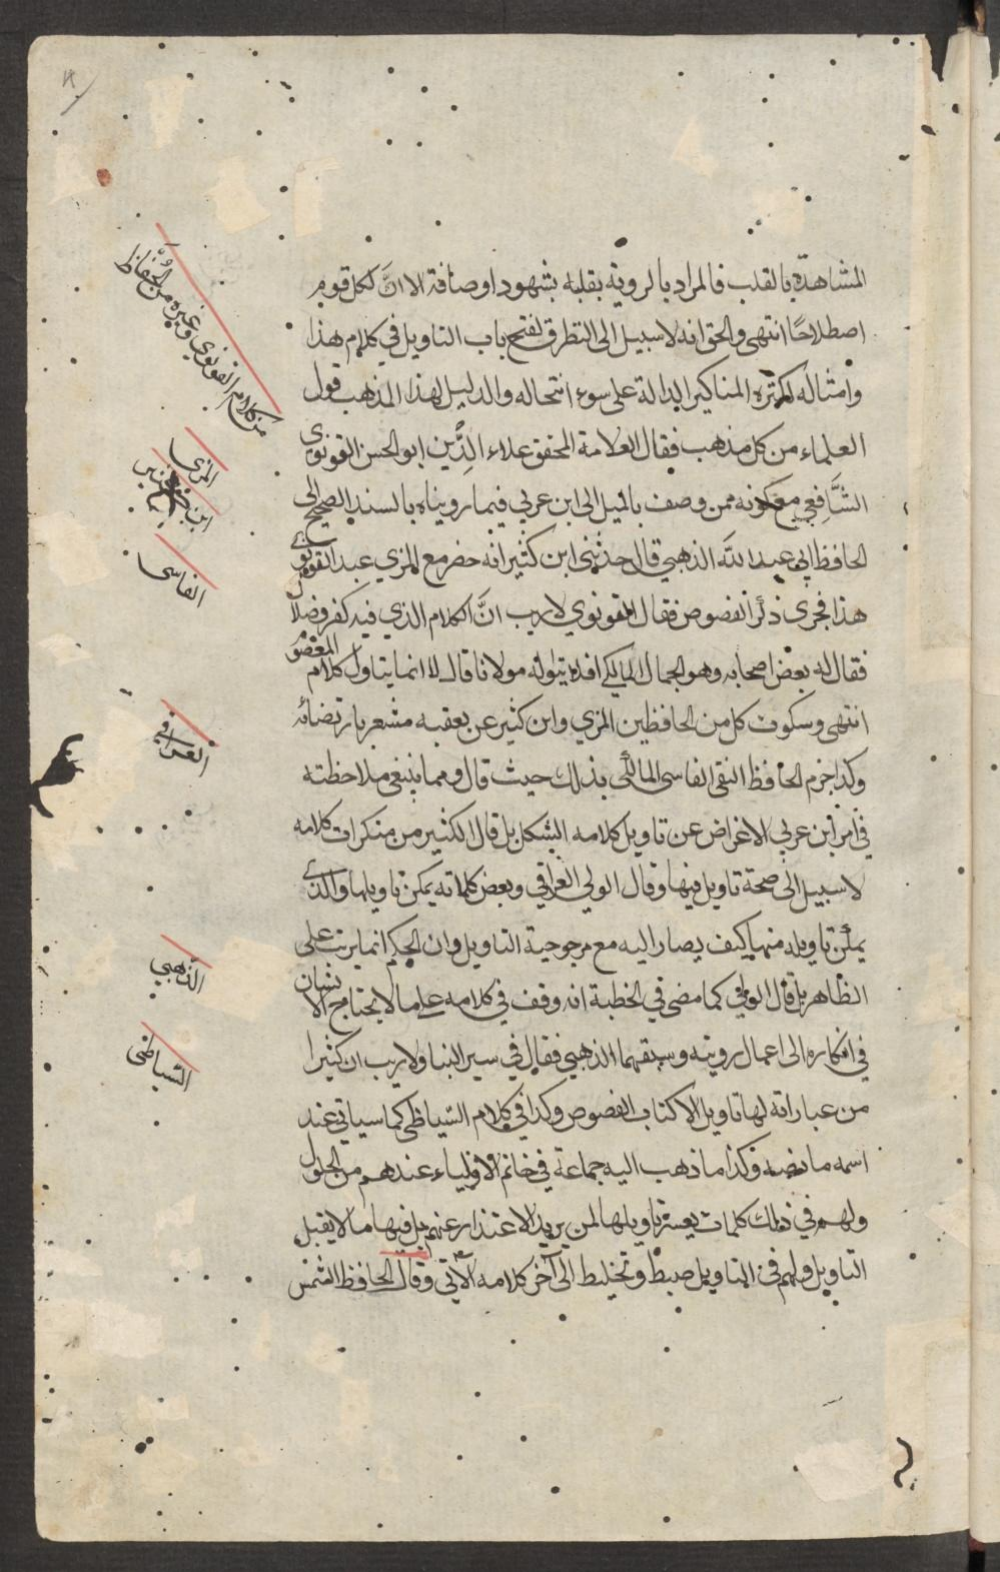 المشاهدة بالقلب فالمراد بالروية بقلبه بشهود اوصافة الا انَّ لكل قوم
اصطلاحًا انتهى والحق انه لا سبيل الى التطرق لفتح باب التاويل في كلام هذا
وامثاله لكثرة المناكير الدالة على سوء انتحاله والدليل لهذا المذهب قول
العلماء من كل مذهب فقال العلامة المحقق علاء الدِّين ابو الحسن القونوى
الشَّافعي مع كونه ممن وصف بالميل الى ابن عربي فيما رويناه بالسند الصحيح الى
الحافظ ابي عبد الله الذهبي قال حدثني ابن كثير انه حضر مع المزي عند القونوي
هذا فجرى ذكر الفصوص فقال القونوي لا ريب انَّ الكلام الذي فيه كفر وضلال
فقال له بعض اصحابه وهو الجمال المالكي افلا يتاوله مولانا قال لا انما يتاول كلام المعصوم
انتهى وسكوت كل من الحافظين المزي وابن كثير عن تعقبه مشعر بارتضائه
وكذا جزم الحافظ التقى الفاسى المالكى بذلك حيث قال ومما ينبغي ملاحظته
في امر ابن عربي الاعراض عن تاويل كلامه المشكل بل قال الكثير من منكرات كلامه
لا سبيل الى صحة تاويل فيها وقال الولي العراقي وبعض كلماته يمكن تاويلها والذى
يمكن تاويله منها كيف يصار اليه مع مرجوحية التاويل وان الحكم انما يرتب على
الظاهر بل قال الولي كما مضى في الخطبة انه وقف في كلامه على ما لا يحتاج الانسان
في انكاره الى اعمال روية وسبقهما الذهبي فقال في سير النبلا ولا ريب ان كثيرا
من عباراته لها تاويل الا كتاب الفصوص وكذا في كلام الشياطى كما سياتي عند
اسمه ما نصه وكذا ما ذهب اليه جماعة في خاتم الاولياء عندهم من الحلول
ولهم في ذلك كلمات يعسر تاويلها لمن يريد الاعتذار عنهم بل فيها ما لا يقبل
التاويل ولهم في التاويل خبط وتخليط الى آخر كلامه الآتي وقال الحافظ الشمس
من كلام القونوي وغيره من الحُفَّاظ
المزى
ابن كثير
الفاسى
العراقي
الذهبي
الشياطى